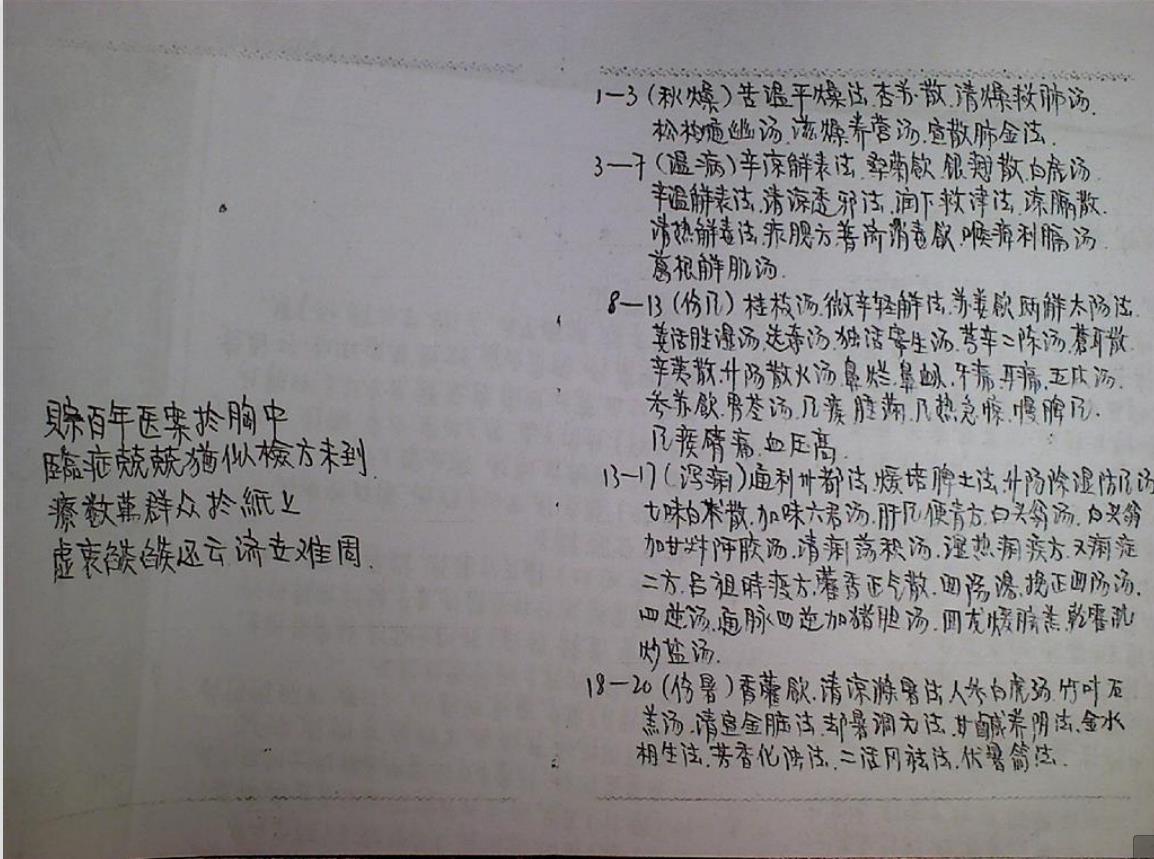 賒百年医案於胸中
臨症兢兢猶似檢方未到
療数萬群众於紙上
虚衷欿欿还云济世难周.
1-3(秋燥)苦温平燥法.杏苏散.清燥救肺汤.
松柏通幽汤.滋燥养营汤.宣散肺金法.
3—7(温病)辛凉解表法.桑菊飲.银翘散.白虎汤.
辛温解表法.清凉透邪法.润下救津法.凉膈散.
清热解毒法.普济消毒飲.喉痹利膈汤.
葛根解肌汤.
8—13(伤风)桂枝汤.微辛轻解法.苏姜飲.两解太阳法.
羌活胜湿汤.选奇汤.独活寄生汤.芎辛二陈汤.蒼耳散.
辛荑散.升阳散火汤.鼻烂.鼻衄.牙痛.耳痛.五皮汤.
参苏飲.胃苓汤.风痰肿满.风热急惊.慢脾风.
风痰臂痛.血压高.
13-17(泻痢)通利州都法.煖培脾土法.升阳除湿防风汤
七味白术散.加味六君汤.肝风便青方.白头翁汤.白头翁
加甘草阿胶汤.清痢荡积汤.湿热痢疾方.又痢症
二方.吕祖時疫方.藿香正气散.回阳湯.挽正回阳汤.
四逆汤.通脉四逆加猪胆汤.
炒盐汤.
18-20(伤暑)香薷飲.清凉滌暑法.人参白虎汤.竹叶石
羔汤.清宣金脏法.却暑调元法.甘鹹养阴法.金水
相生法.芳香化浊法.二活同祛法.伏暑简法.